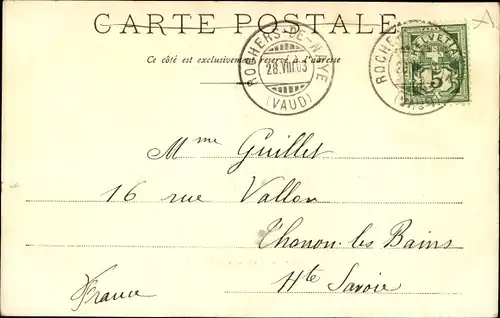 CARTE POSTALE
Ce côté est exclusivement réservé à l'adresse
ROCHERS-DE-NAYE
28.VIII.03
(VAUD)
ROCHERS
(VAUD)
HELVETIA
Mme Guillet
16 rue Vallon
Thonon-les Bains
Hte Savoie
France